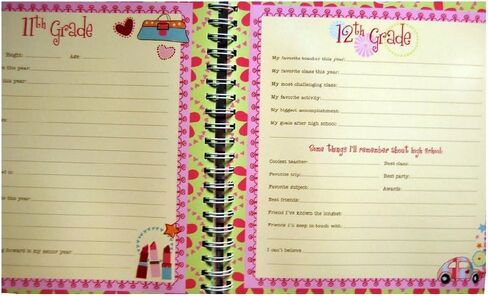 11th Grade
Height: Age:
this year:
this year:
ed to
this year:
forward to my senior year:
12th Grade
My favorite teacher this year:
My favorite class this year:
My most challenging class:
My favorite activity:
My biggest accomplishment:
My goals after high school:
Some things I'll remember about high school:
Coolest teacher: Best class:
Favorite trip: Best party:
Favorite subject: Awards:
Best friends:
Friend I've known the longest:
Friends I'll keep in touch with:
I can't believe